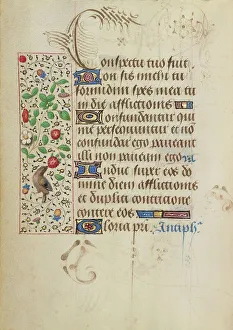 Conspectu tuo fuit
Non sis michi tu
formidini spes mea tu
in die afflictionis
Confundantur qui
me persecuntur et no
confundar ego paveant
illi non paveam ego
Induc super eos do
mine diem afflictionis
et duplici contricione
contere eos
Gloria pri. Antiph.